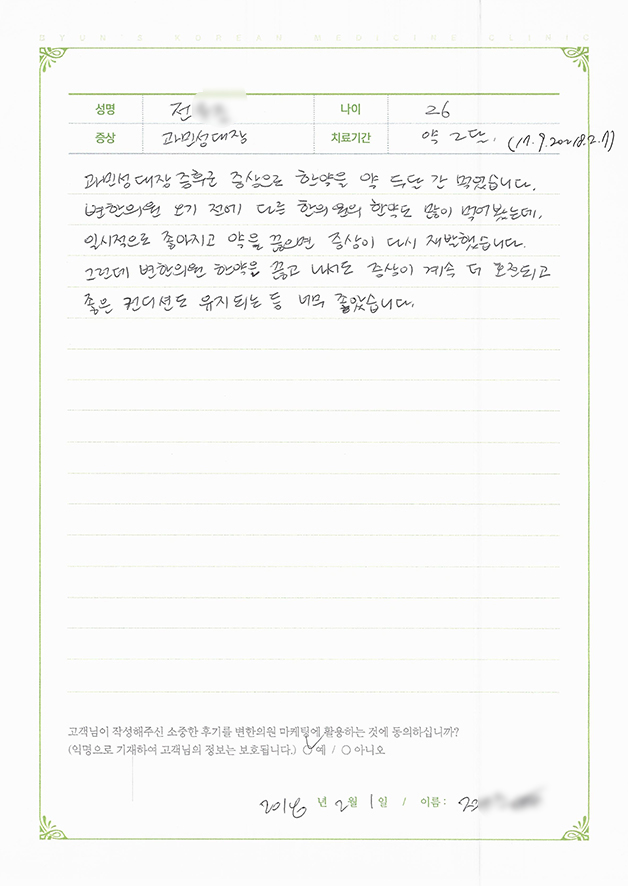 BYUN'S KOREAN MEDICINE CLINIC
성명 전 나이 26
증상 과민성대장 치료기간 약 2달. (17.9.20~18.2.1)
과민성대장증후군 증상으로 한약을 약 두달 간 먹었습니다.
변한의원 오기 전에 다른 한의원의 한약도 많이 먹어봤는데,
일시적으로 좋아지고 약을 끊으면 증상이 다시 재발했습니다.
그런데 변한의원 한약을 끊고 나서도 증상이 계속 더 호전되고
좋은 컨디션도 유지되는 등 너무 좋았습니다.
고객님이 작성해주신 소중한 후기를 변한의원 마케팅에 활용하는 것에 동의하십니까?
(익명으로 기재하여 고객님의 정보는 보호됩니다.) ○예 / ○아니오
2018 년 2월 1일 / 이름 :